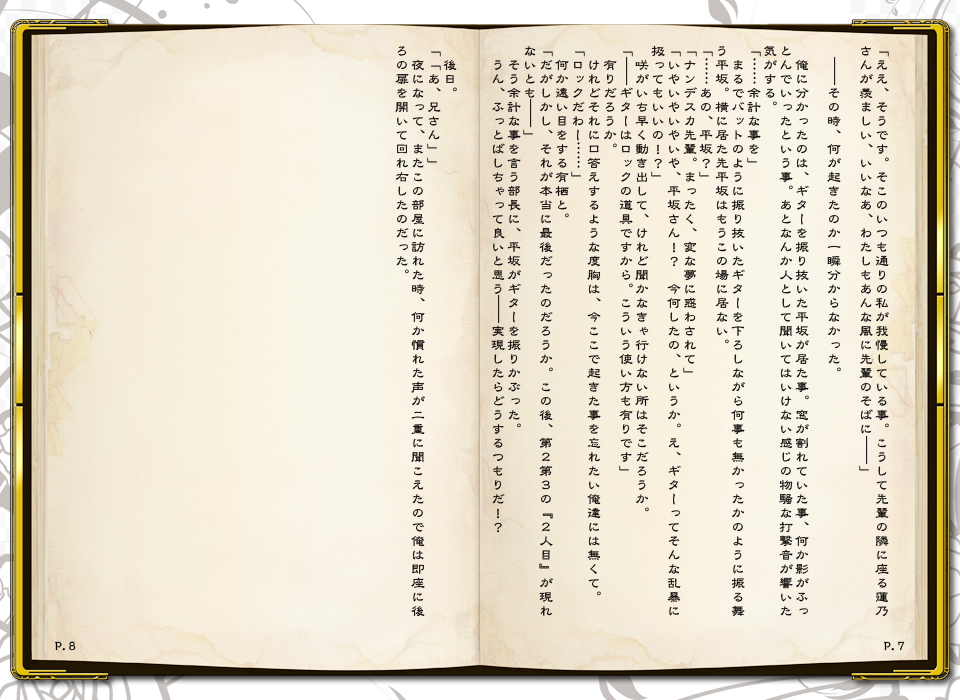 「ええ、そうです。そこのいつも通りの私が我慢している事。こうして先輩の隣に座る蓮乃
さんが羨ましい、いいなあ、わたしもあんな風に先輩のそばに――」
――その時、何が起きたのか一瞬分からなかった。
俺に分かったのは、ギターを振り抜いた平坂が居た事。窓が割れていた事、何か影がふっ
とんでいったという事。あとなんか人として聞いてはいけない感じの物騒な打撃音が響いた
気がする。
「……余計な事を」
まるでバットのように振り抜いたギターを下ろしながら何事も無かったかのように振る舞
う平坂。横に居た先平坂はもうこの場に居ない。
「……あの、平坂？」
「ナンデスカ先輩。まったく、変な夢に惑わされて」
「いやいやいやいや、平坂さん！？　今何したの、というか。え、ギターってそんな乱暴に
扱ってもいいの！？」
咲がいち早く動き出して、けれど聞かなきゃ行けない所はそこだろうか。
「――ギターはロックの道具ですから。こういう使い方も有りです」
有りだろうか。
けれどそれに口答えするような度胸は、今ここで起きた事を忘れたい俺達には無くて。
「ロックだわー……」
何か遠い目をする有栖と。
「だがしかし、それが本当に最後だったのだろうか。この後、第２第３の『２人目』が現れ
ないとも――」
そう余計な事を言う部長に、平坂がギターを振りかぶった。
うん、ふっとばしちゃって良いと思う――実現したらどうするつもりだ！？
P.7
後日。
「「あ、兄さん」」
夜になって、またこの部屋に訪れた時、何か慣れた声が二重に聞こえたので俺は即座に後
ろの扉を開いて回れ右したのだった。
P.8